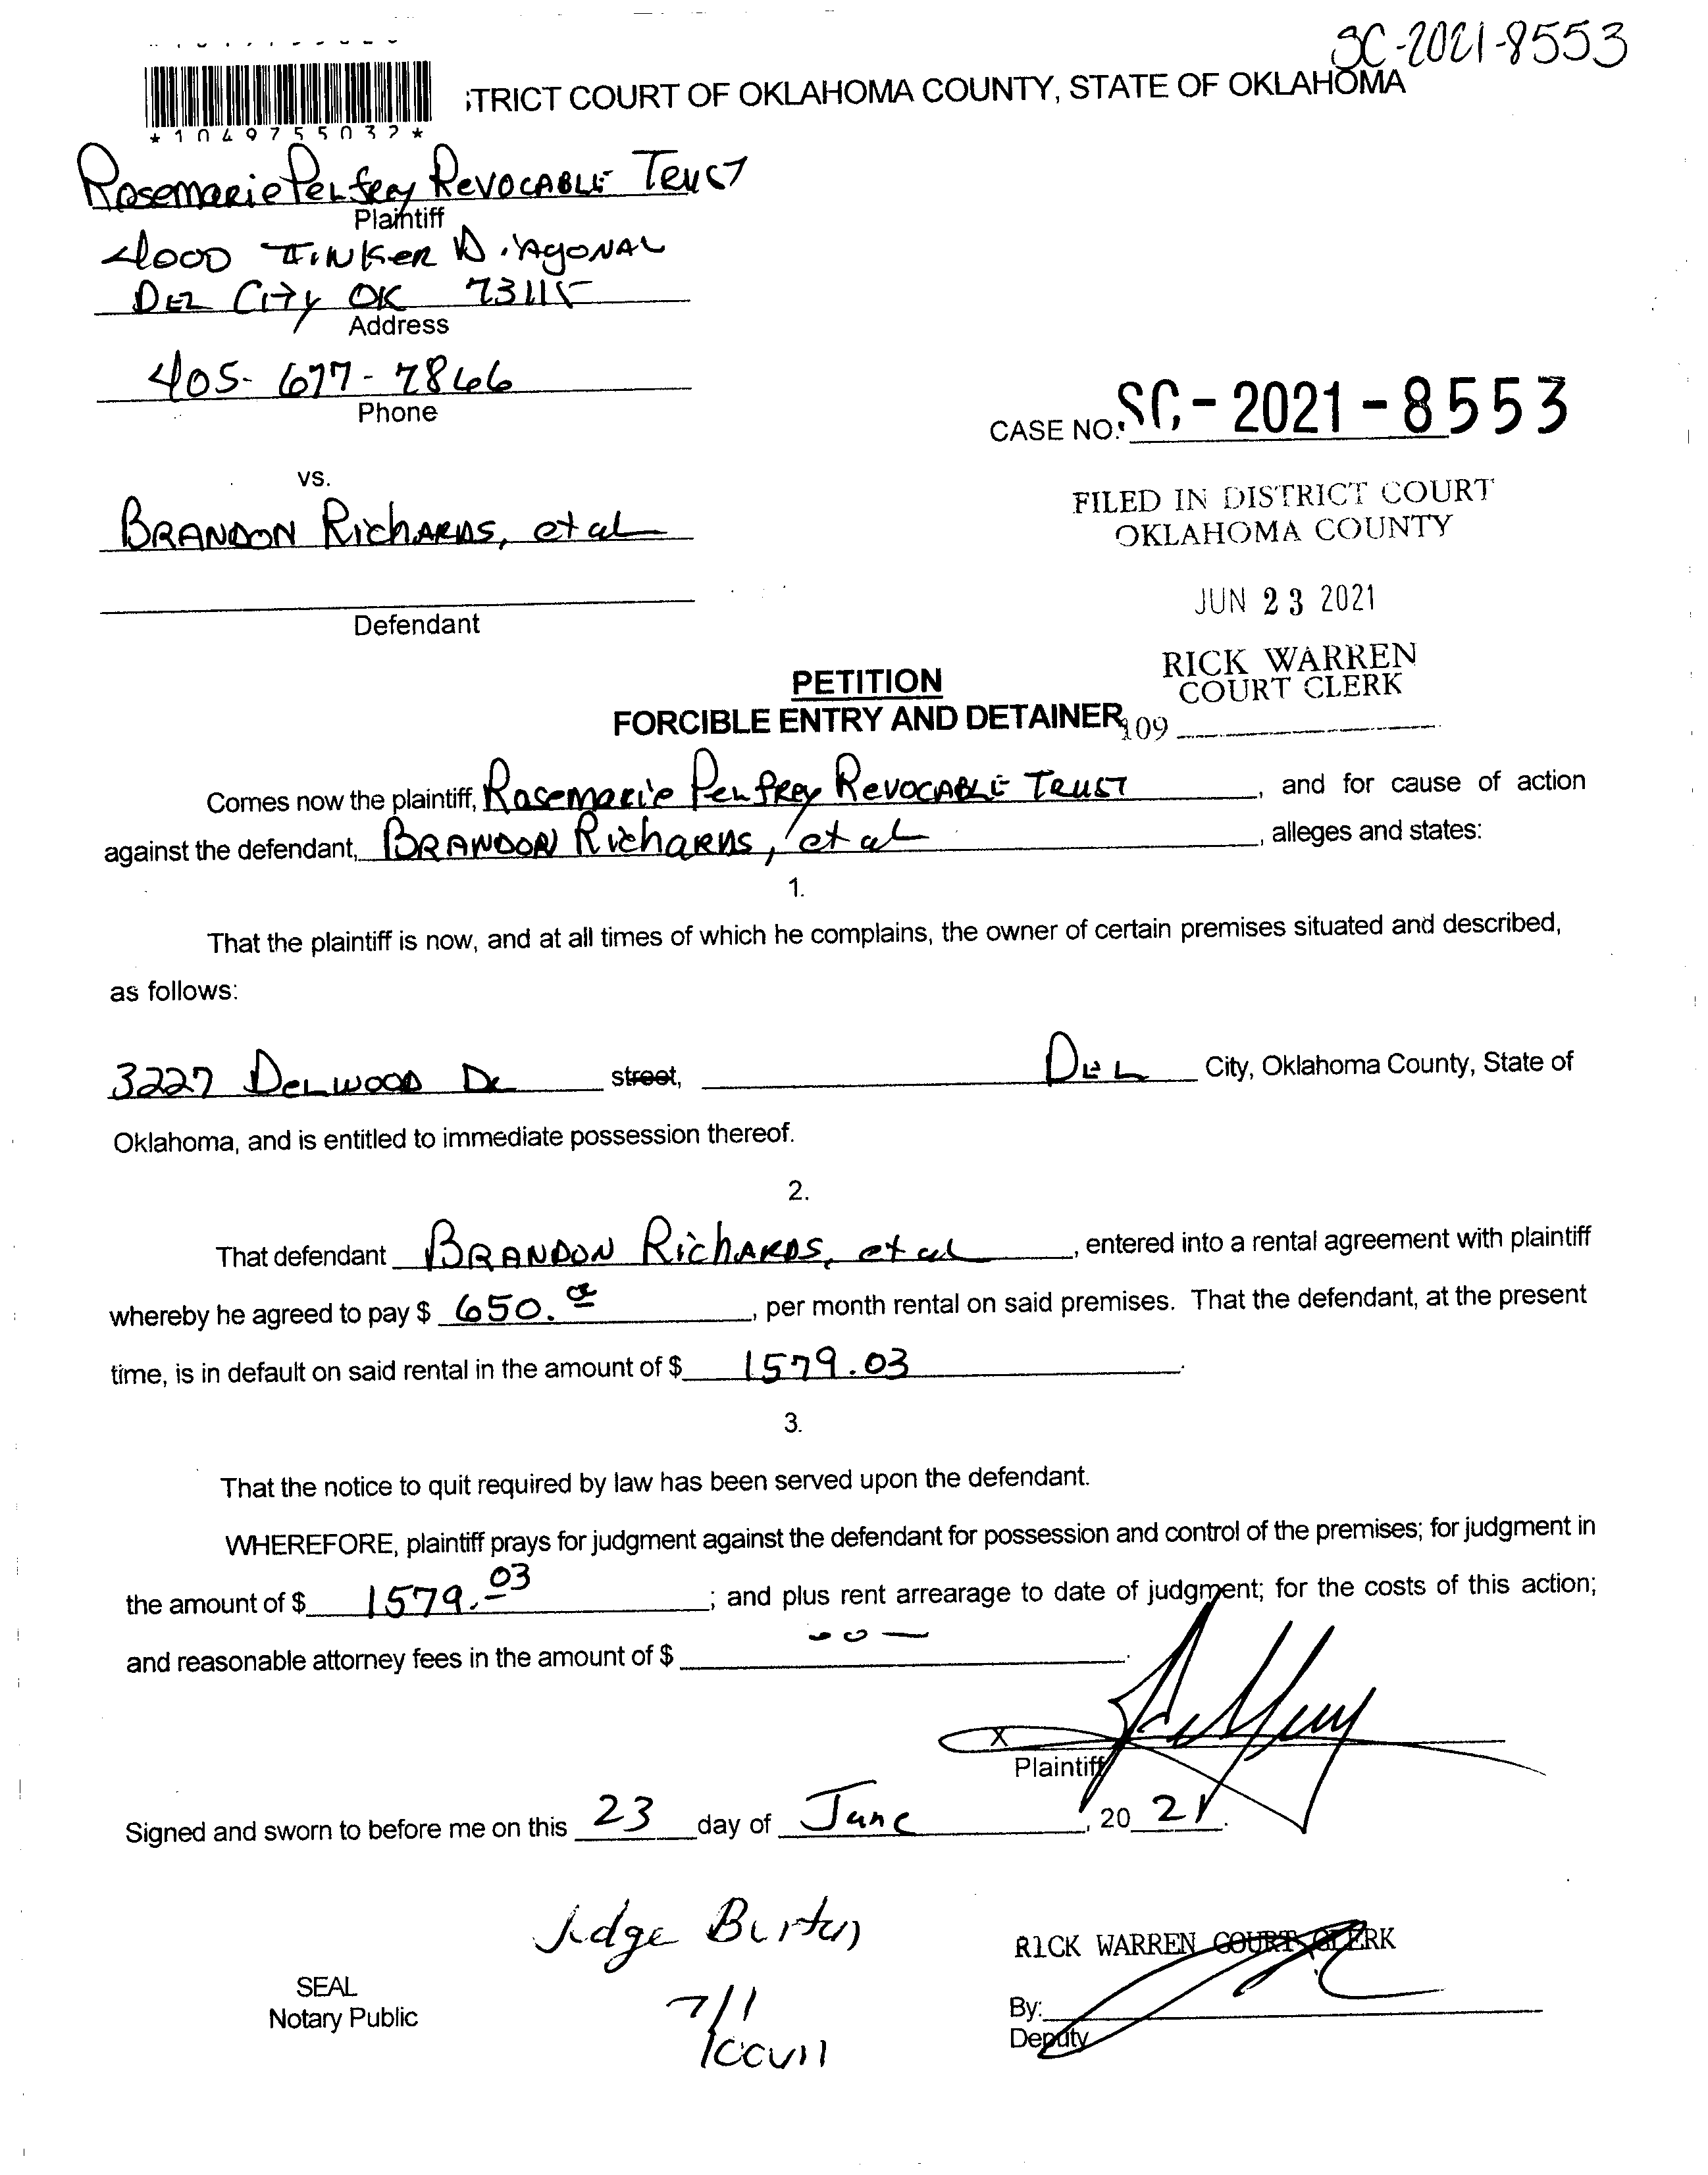 SC-2021-8553
TRICT COURT OF OKLAHOMA COUNTY, STATE OF OKLAHOMA
*1049755032*
Rosemarie Pelfrey Revocable Trust
Plaintiff
4000 Tinker Diagonal
Del City OK 73115
Address
405-677-7866
Phone
CASE NO. SC-2021-8553
vs.
Brandon Richards, et al
Defendant
FILED IN DISTRICT COURT
OKLAHOMA COUNTY
JUN 23 2021
RICK WARREN
COURT CLERK
109
PETITION
FORCIBLE ENTRY AND DETAINER
Comes now the plaintiff, Rosemarie Pelfrey Revocable Trust, and for cause of action
against the defendant, Brandon Richards, et al, alleges and states:
1.
That the plaintiff is now, and at all times of which he complains, the owner of certain premises situated and described,
as follows:
3227 Delwood Dr street, Del City, Oklahoma County, State of
Oklahoma, and is entitled to immediate possession thereof.
2.
That defendant Brandon Richards, et al, entered into a rental agreement with plaintiff
whereby he agreed to pay $ 650.00, per month rental on said premises. That the defendant, at the present
time, is in default on said rental in the amount of $ 1579.03.
3.
That the notice to quit required by law has been served upon the defendant.
WHEREFORE, plaintiff prays for judgment against the defendant for possession and control of the premises; for judgment in
the amount of $ 1579.03; and plus rent arrearage to date of judgment; for the costs of this action;
and reasonable attorney fees in the amount of $ -0-.
X
Plaintiff
Signed and sworn to before me on this 23 day of June, 2021.
Judge Burton
7/1
RICK WARREN COURT CLERK
SEAL
Notary Public
By:
Deputy